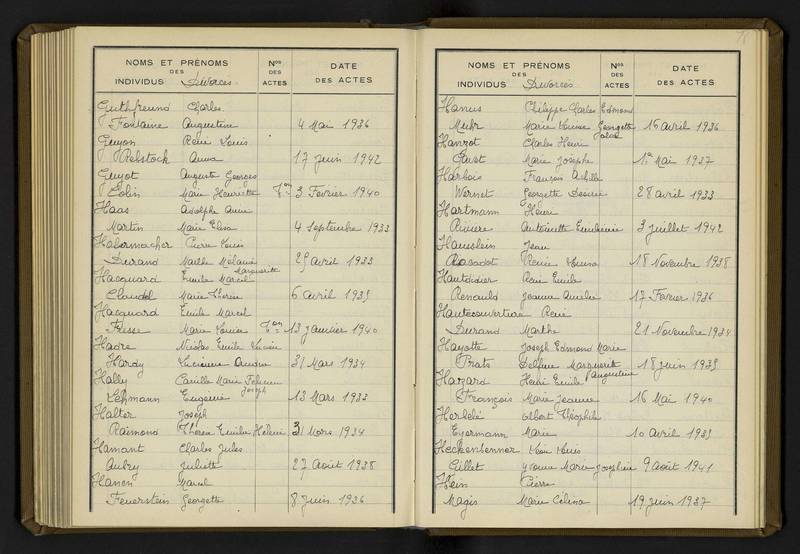 NOMS ET PRÉNOMS
DES
INDIVIDUS Divorcés
Nos
DES
ACTES
DATE
DES ACTES
Guthfreund Charles
Fontaine Augustine 4 Mai 1936
Guyon René Louis
Pelstock Anna 17 Juin 1942
Guyot Auguste Georges
Colin Marie Henriette 3 Février 1940
Haas Adolphe
Martin Marie Elisa 4 Septembre 1933
Habermacher Pierre Louis
Durand Mélanie Marguerite 29 Avril 1933
Hacquard Emile Marcel
Claudel Marie Thérèse 6 Avril 1935
Hacquard Emile Marcel
Marie Louise 13 Janvier 1940
Hadre Nicolas Emile Lucien
Hardy Lucienne 31 Mars 1934
Hally Camille Marie Joseph
Lehmann Eugénie 13 Mars 1933
Halter Joseph
Raimond Thérèse Emilie Hélène 31 Mars 1934
Hamant Charles Jules
Aubry Juliette 27 Août 1938
Hanen Marcel
Feuerstein Georgette 8 Juin 1936
NOMS ET PRÉNOMS
DES
INDIVIDUS Divorcés
Nos
DES
ACTES
DATE
DES ACTES
Hanus Philippe Charles Edmond
Muhr Marie Louise Georgette 15 Avril 1936
Charles Henri
Marie Josèphe Mai 1937
Harbois François Achille
Wernet Georgette 28 Avril 1933
Hartmann Henri
Rivière Antoinette 3 Juillet 1942
Hausslein Jean
Renée 18 Novembre 1938
Hautdidier René Emile
Renauld Jeanne 17 Février 1936
Hautecouverture René
Durand Marthe 21 Novembre 1934
Hayotte Joseph Edmond Marie
Prats Delphine Marguerite Augustine 18 Juin 1935
Hazard Henri Emile
François Marie Jeanne 16 Mai 1940
Albert Théophile
Eyermann Marie 10 Avril 1935
Heckenbenner Léon Louis
Gillet Yvonne Marie Joséphine 9 Août 1941
Hein Pierre
Magis Marie Célina 19 Juin 1937